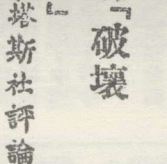 「破壞
」塔斯社評論